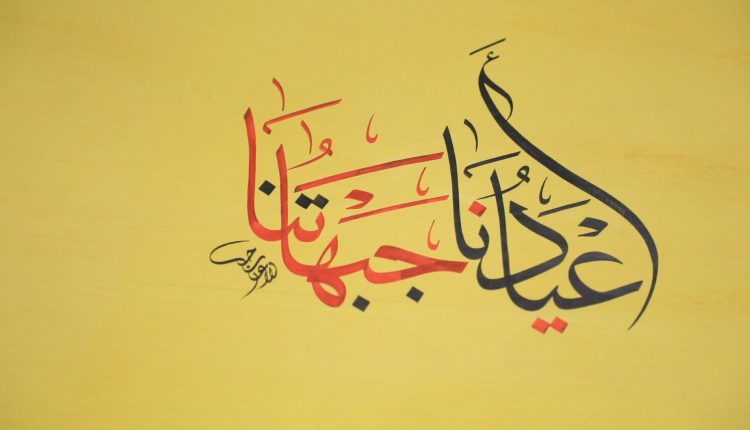 أَعْيَادُنَا جَبْهَاتُنَا